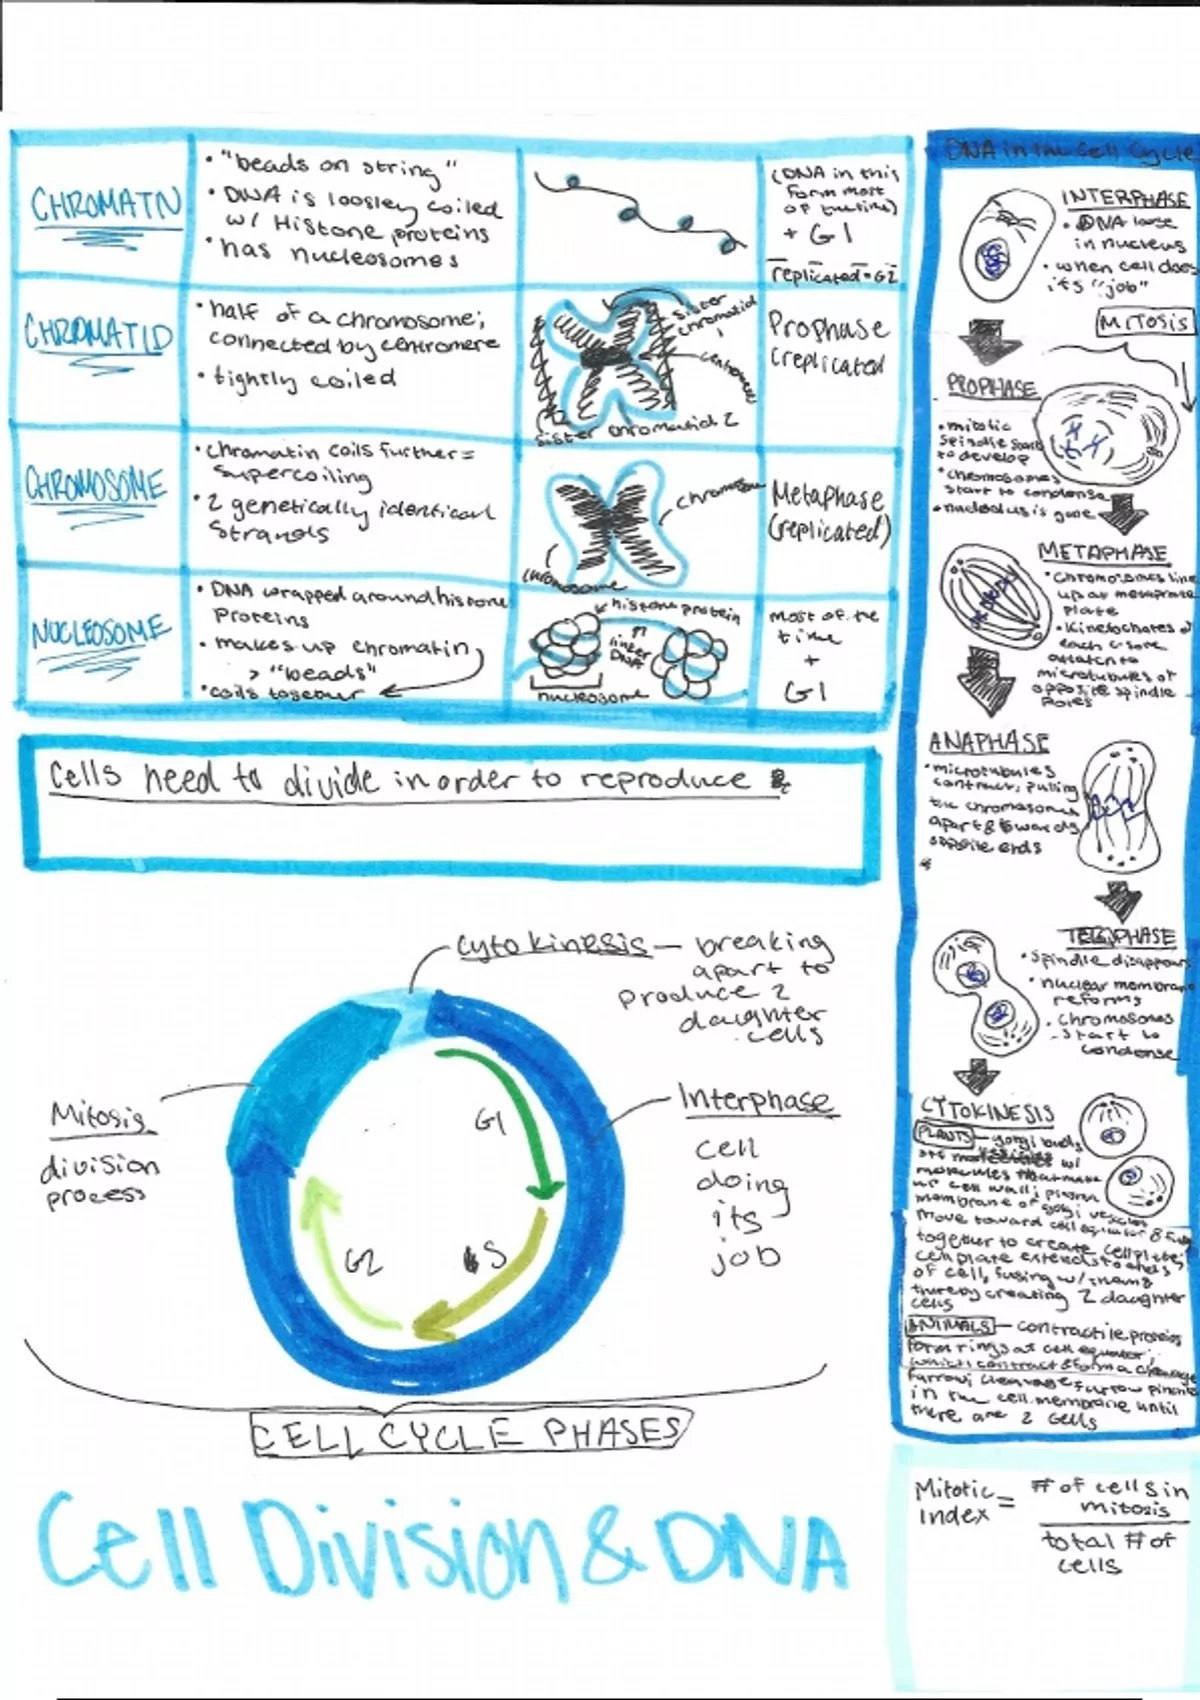 CHROMATN
• "beads on string"
• DNA is loosley coiled
w/ Histone proteins
• has nucleosomes
(DNA in this
form most
of the time)
+ G1
replicated = G2
CHROMATID
• half of a chromosome;
connected by centromere
• tightly coiled
sister
chromatid
1
centromere
sister chromatid 2
Prophase
(replicated
CHROMOSOME
• chromatin coils further =
supercoiling
• 2 genetically identical
strands
chromosome
chromosome
Metaphase
(replicated)
NUCLEOSOME
• DNA wrapped around histone
proteins
• makes up chromatin
> "beads"
• coils together
histone protein
linker
DNA
nucleosome
most of the
time
+
G1
Cells need to divide in order to reproduce &
cytokinesis — breaking
apart to
produce 2
daughter
cells
Mitosis
division
process
G1
S
G2
Interphase
cell
doing
its
job
CELL CYCLE PHASES
Cell Division & DNA
DNA in the Cell Cycle
INTERPHASE
• DNA loose
in nucleus
• when cell does
its "job"
MITOSIS
PROPHASE
• mitotic
spindle start
to develop
• chromosomes
start to condense
• nucleolus is gone
METAPHASE
• chromosomes line
up at metaphase
plate
• Kinetochores of
each
attatch to
microtubules of
opposite spindle
poles
ANAPHASE
• microtubules
contract, pulling
the chromosomes
apart & towards
opposite ends
TELOPHASE
• spindle disappears
• nuclear membrane
reforms
• chromosomes
start to
condense
CYTOKINESIS
PLANTS — golgi buds
off w/
molecules that make
up cell wall; plasma
membrane of golgi vesicles
move toward cell equator & fuse
together to create cell plate;
cell plate extends to ends
of cell, fusing w/
thereby creating 2 daughter
cells
ANIMALS — contractile proteins
form rings at cell equator;
which contract & form a cleavage
furrow; cleavage furrow pinches
in the cell membrane until
there are 2 cells
Mitotic index = # of cells in
mitosis
total # of
cells